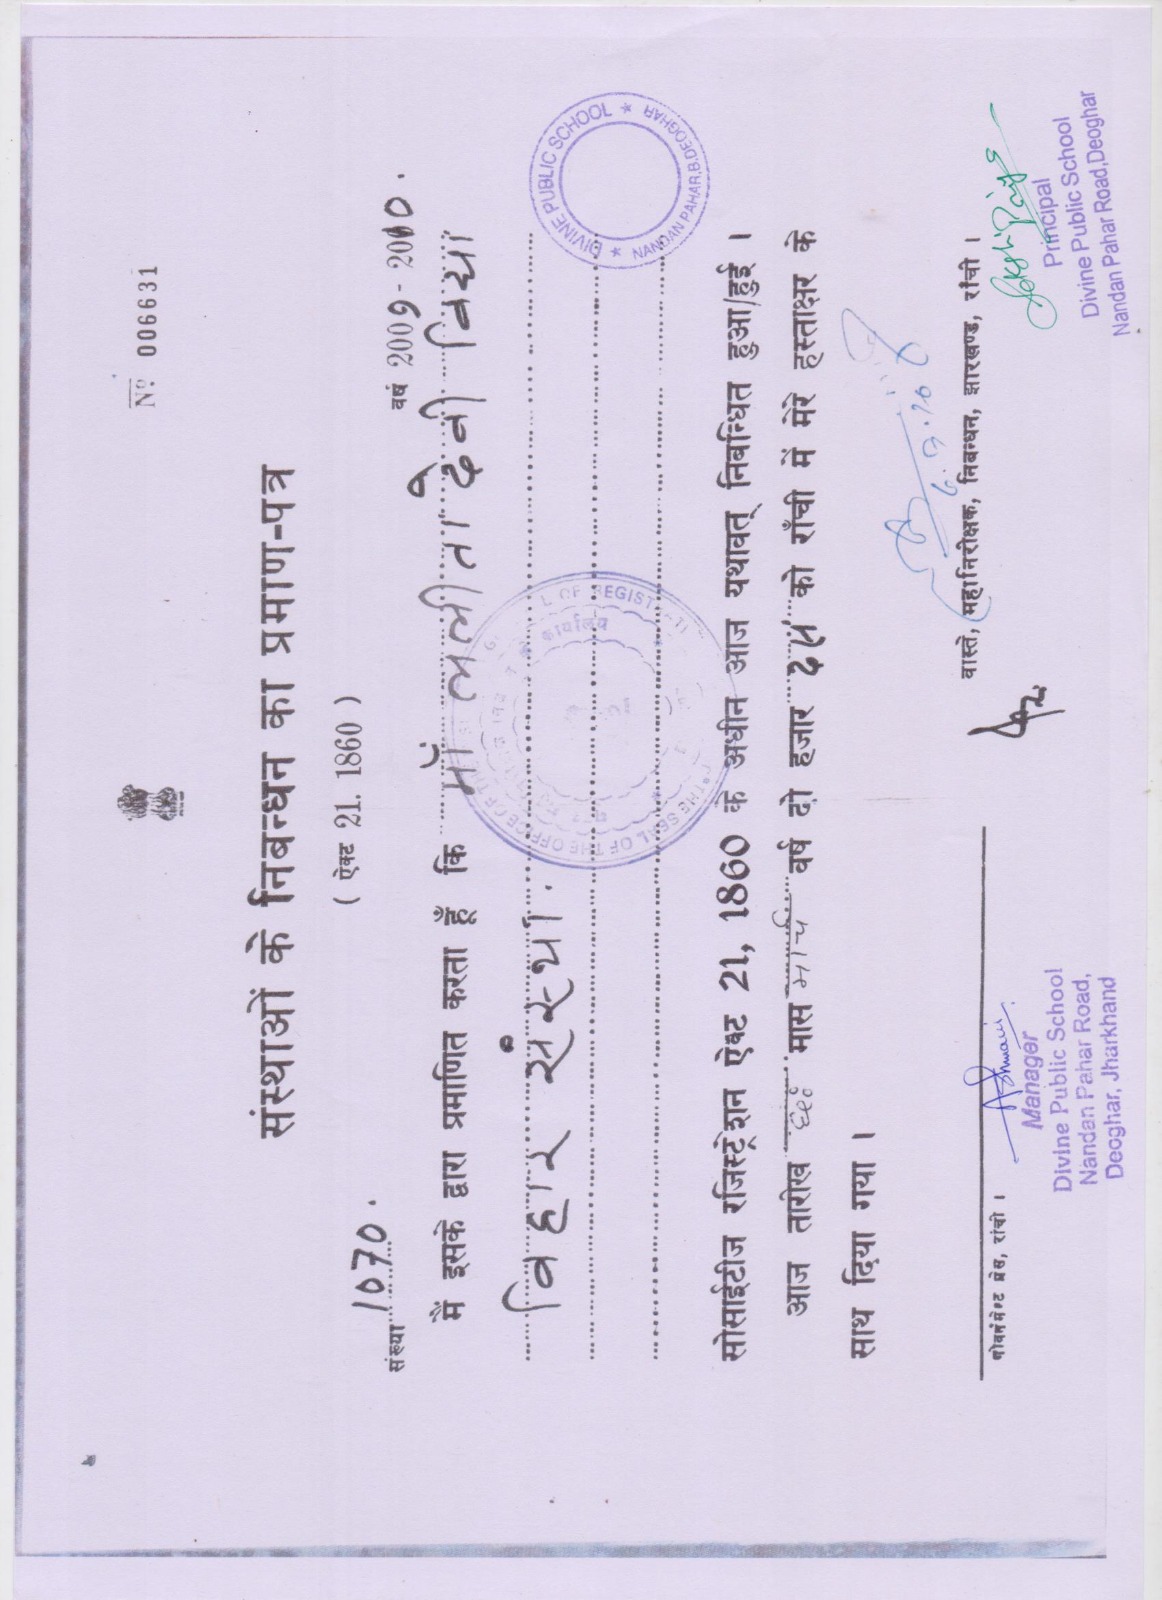 Nº 006631
संस्थाओं के निबन्धन का प्रमाण-पत्र
( ऐक्ट 21. 1860 )
संख्या 1070.
वर्ष 2009 - 2010.
मैं इसके द्वारा प्रमाणित करता हूँ कि माँ ललीता देवी विद्या
विहार संस्था.
सोसाईटीज रजिस्ट्रेशन ऐक्ट 21, 1860 के अधीन आज यथावत् निबन्धित हुआ/हुई ।
आज तारीख छः मास मार्च वर्ष दो हजार दस को राँची में मेरे हस्ताक्षर के
साथ दिया गया ।
DIVINE PUBLIC SCHOOL
NANDAN PAHAR,B.DEOGHAR
THE SEAL OF THE OFFICE OF THE
कार्यालय
वास्ते, महानिरीक्षक, निबन्धन, झारखण्ड, राँची ।
गोवर्नमेण्ट प्रेस, रांची ।
Manager
Divine Public School
Nandan Pahar Road,
Deoghar, Jharkhand
Principal
Divine Public School
Nandan Pahar Road,Deoghar